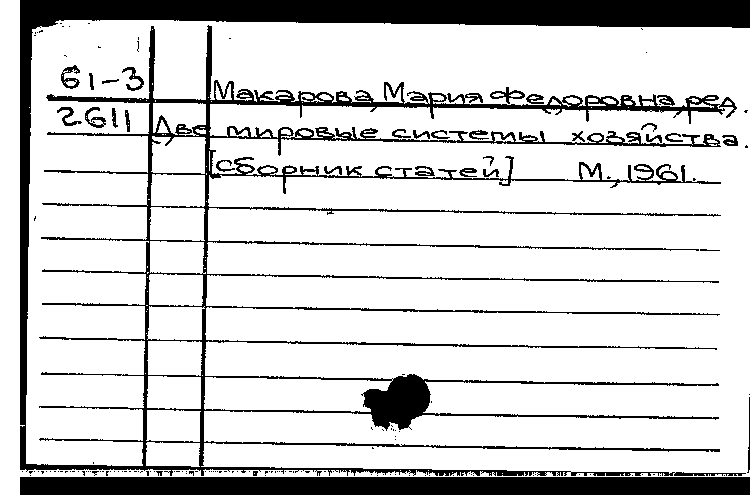 61-3 Макарова, Мария Федоровна, ред.
2611 Две мировые системы хозяйства.
[сборник статей] М., 1961.